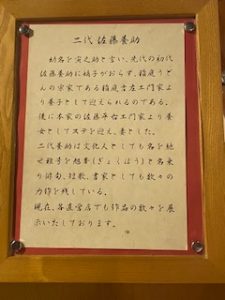 二代 佐藤養助
幼名を寅之助と言い、先代の初代
佐藤養助に嫡子がおらず、稲庭うど
んの宗家である稲庭吉左エ門家より
養子として迎えられるのである。
後に本家の佐藤平右エ門家より養
女としてステを迎え、妻とした。
二代養助は文化人としても名を馳
せ雅号を旭峯(ぎょくほう)と名乗
り俳句、短歌、書家としても数々の
力作を残している。
現在、各直営店でも作品の数々を展
示いたしております。